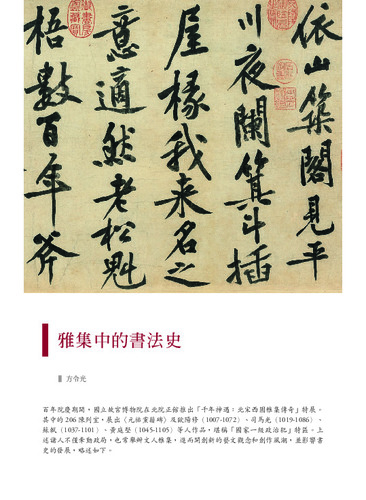 依山築閣見平
川夜闌箕斗插
屋椽我来名之
意適然老松魁
梧數百年斧
雅集中的書法史
方令光
百年院慶期間,國立故宮博物院在北院正館推出「千年神遇:北宋西園雅集傳奇」特展。
其中的 206 陳列室,展出〈元祐黨籍碑〉及歐陽修(1007-1072)、司馬光(1019-1086)、
蘇軾(1037-1101)、黃庭堅(1045-1105)等人作品,堪稱「國家一級政治犯」特區。上
述諸人不僅牽動政局,也常舉辦文人雅集,進而開創新的藝文觀念和創作風潮,並影響書
史的發展,略述如下。